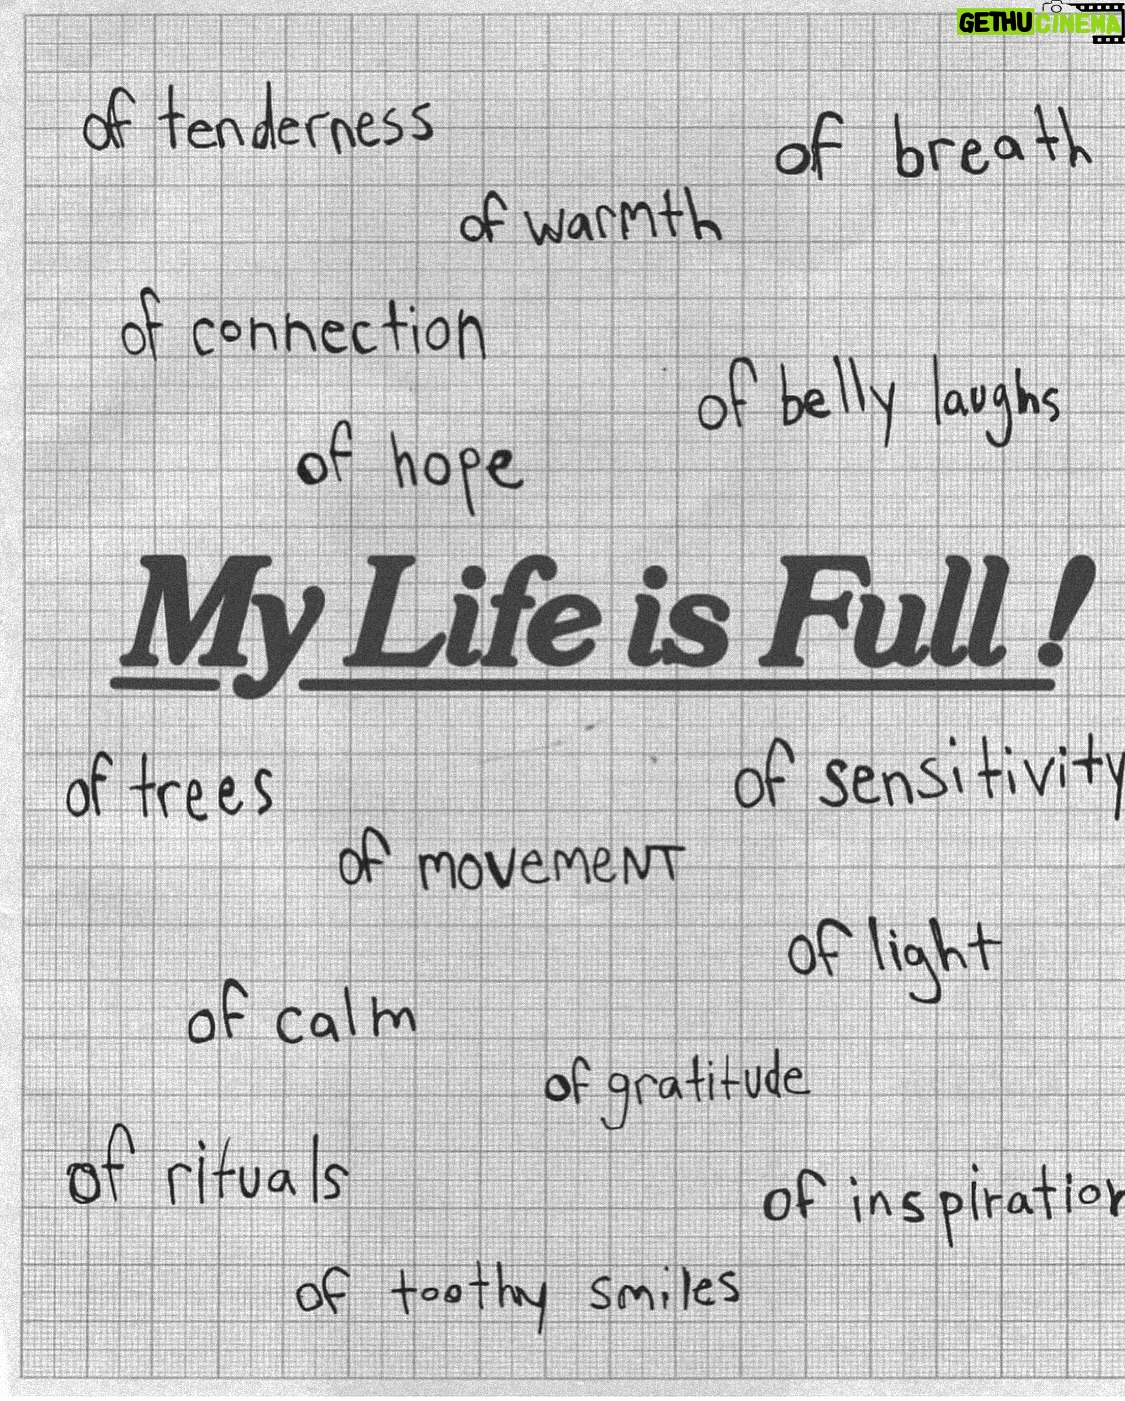 GETHU CINEMA
of tenderness
of breath
of warmth
of connection
of belly laughs
of hope
My Life is Full!
of trees
of sensitivity
of movemeNT
of light
of calm
of gratitude
of rituals
of inspiration
of toothy smiles